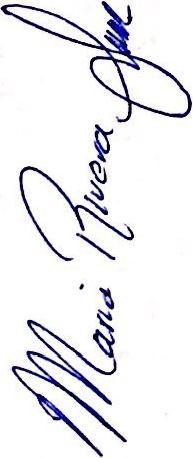 Maria Rivera